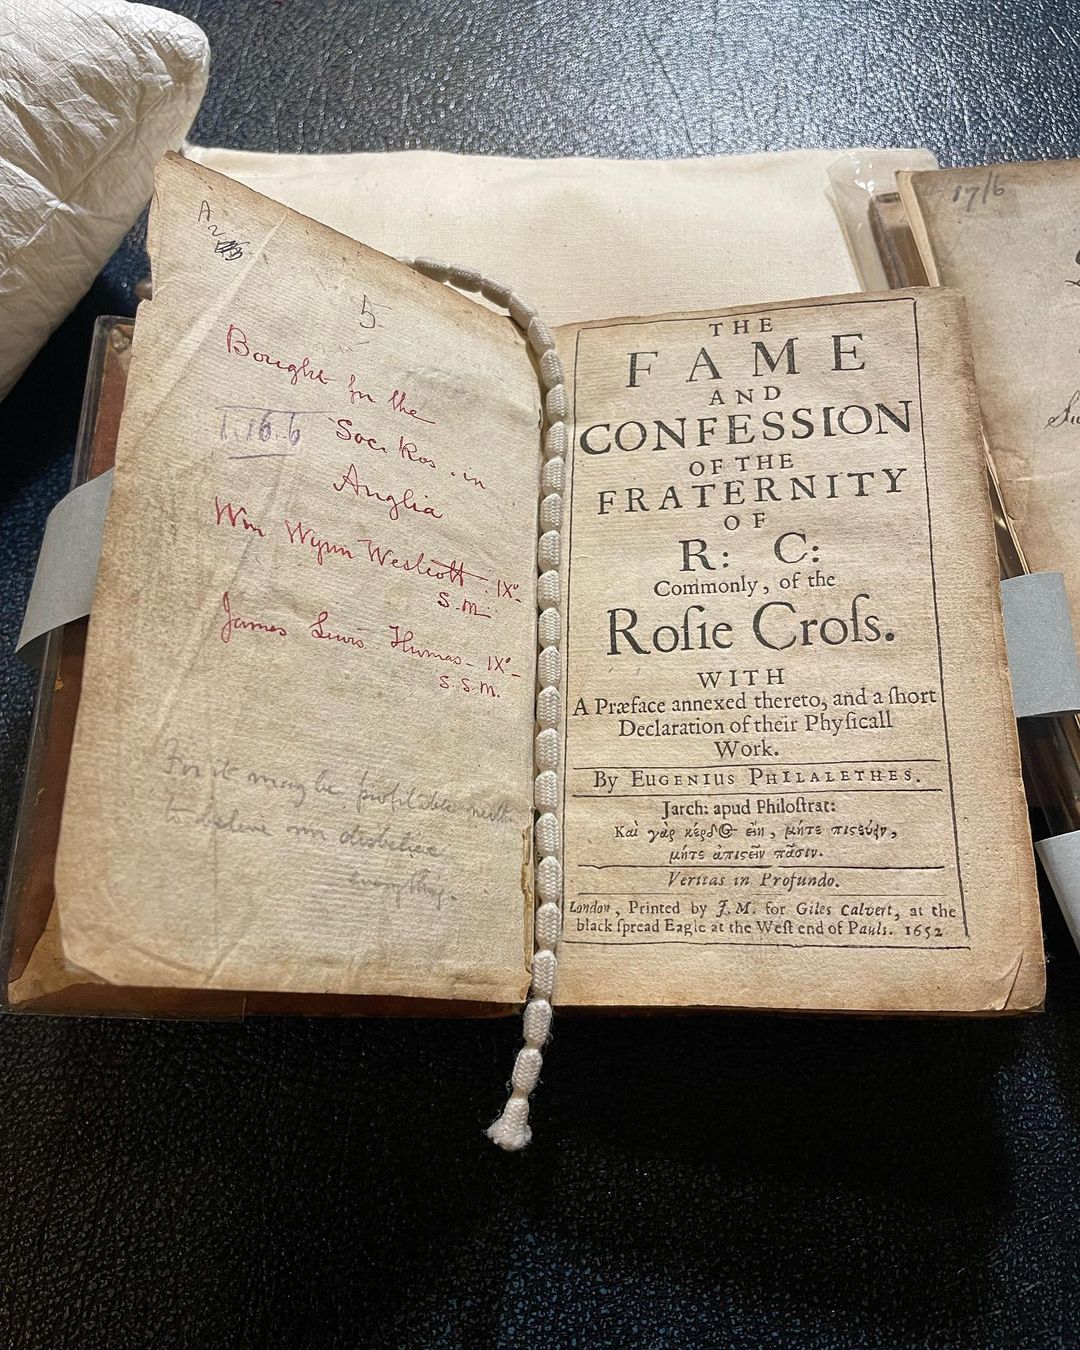 A
2
5
Bought for the
1.16.6
Soc. Ros. in
Anglia
Wm Wynn Westcott. IXº
S.M.
James Lewis Thomas - IXº
S.S.M.
For it may be profitable neith.
to beleive nor disbelieve
everything.
THE
FAME
AND
CONFESSION
OF THE
FRATERNITY
OF
R: C:
Commonly, of the
Roſie Croſs.
WITH
A Præface annexed thereto, and a ſhort
Declaration of their Phyſicall
Work.
By EUGENIUS PHILALETHES.
Jarch: apud Philoſtrat:
Καὶ γὰρ κέρδ Θ- εἴη, μήτε πιςεύειν,
μήτε ἀπιςεῖν πᾶσιν.
Veritas in Profundo.
London, Printed by J.M. for Giles Calvert, at the
black ſpread Eagle at the Weſt end of Pauls. 1652
17/6